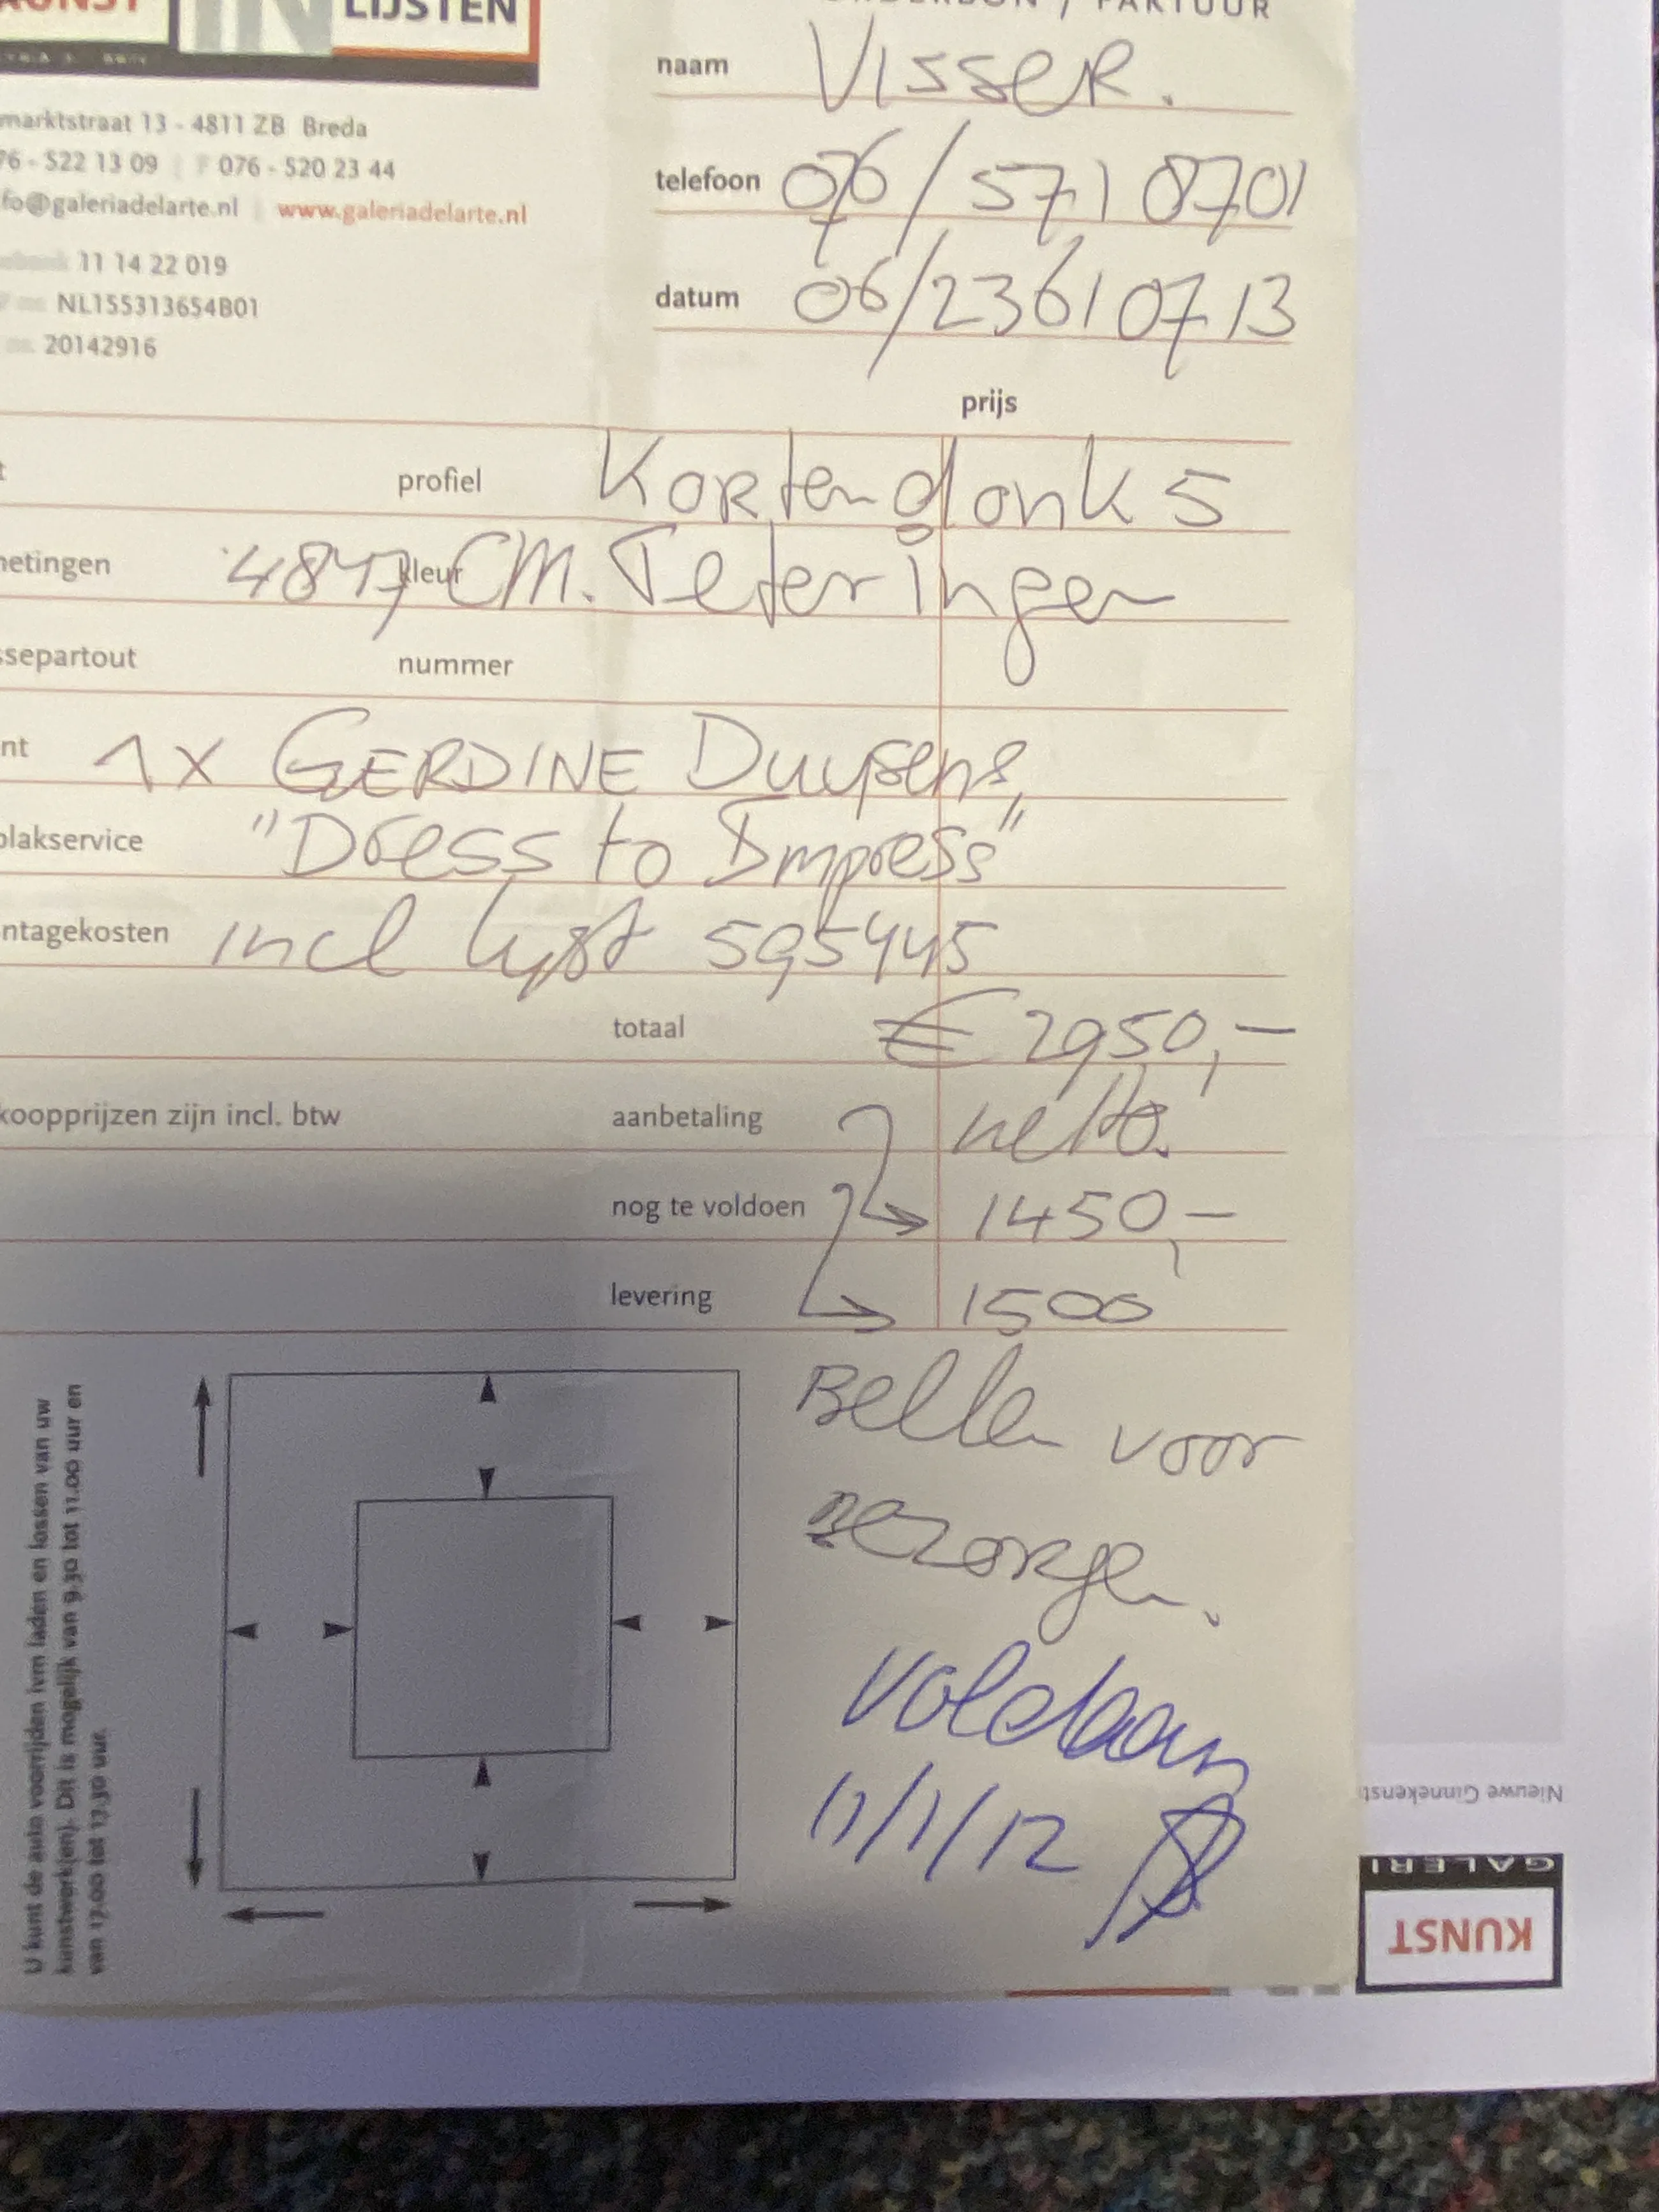 KUNST IN LIJSTEN
ORDERBON / FAKTUUR
naam VISSER.
marktstraat 13 - 4811 ZB Breda
76 - 522 13 09 | F 076 - 520 23 44
telefoon 076/571 8701
fo@galeriadelarte.nl | www.galeriadelarte.nl
11 14 22 019
datum 06/23610713
NL155313654B01
20142916
prijs
profiel Kortendonk 5
metingen kleur 4847 CM. Teteringen
ssepartout nummer
nt 1x GERDINE Duijsens,
plakservice "Dress to Impress"
ntagekosten incl lijst 595445
totaal € 2950,-
koopprijzen zijn incl. btw aanbetaling netto.
nog te voldoen 1450,-
levering 1500
Bellen voor
bezorgen.
Voldaan
11/1/12
U kunt de auto voorrijden ivm laden en lossen van uw
kunstwerk(en). Dit is mogelijk van 9.30 tot 11.00 uur en
van 17.00 tot 17.30 uur.
Nieuwe Ginnekenst
GALERI
KUNST